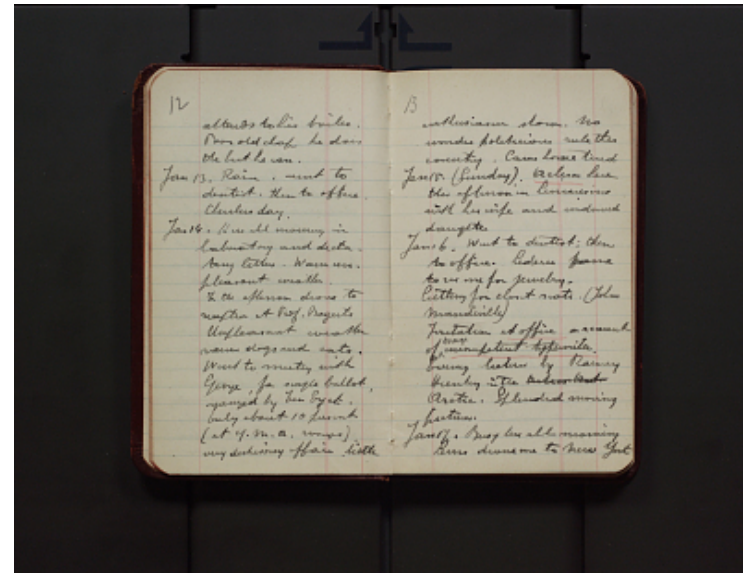 12
attends to his boiler.
Poor old chap he does
the best he can.
Jan 13. Rain. went to
dentist. then to office.
Cheerless day.
Jan 14. Here all morning in
laboratory and dicta-
ting letters. Warm
pleasant weather.
In the afternoon drove to
at Prof.
Unpleasant weather
dogs and cats.
Went to meeting with
George, for single ballot,
organized by Ten Eyck.
Only about 10 present
(at Y.M.C.A. rooms)
very affair little
13
enthusiasm shown. No
wonder politicians rule this
country. Came home tired
Jan 15. (Sunday). here
this afternoon in limousine
with his wife and widowed
daughter
Jan 16. Went to dentist; then
to office.
to see me for jewelry.
for closet seats. (John
Mandeville)
Irritation at office on account
of new incompetent typewriter.
Evening lecture by Rainey
in the
Arctic. Splendid moving
pictures.
Jan 17. Busy here all morning
drove me to New York